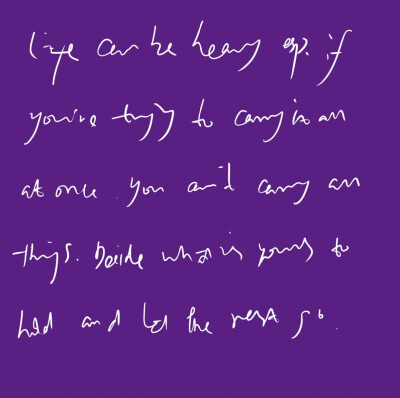 life can be heavy esp. if
you're trying to carry it all
at once. You can't carry all
things. Decide what is yours to
hold and let the rest go.